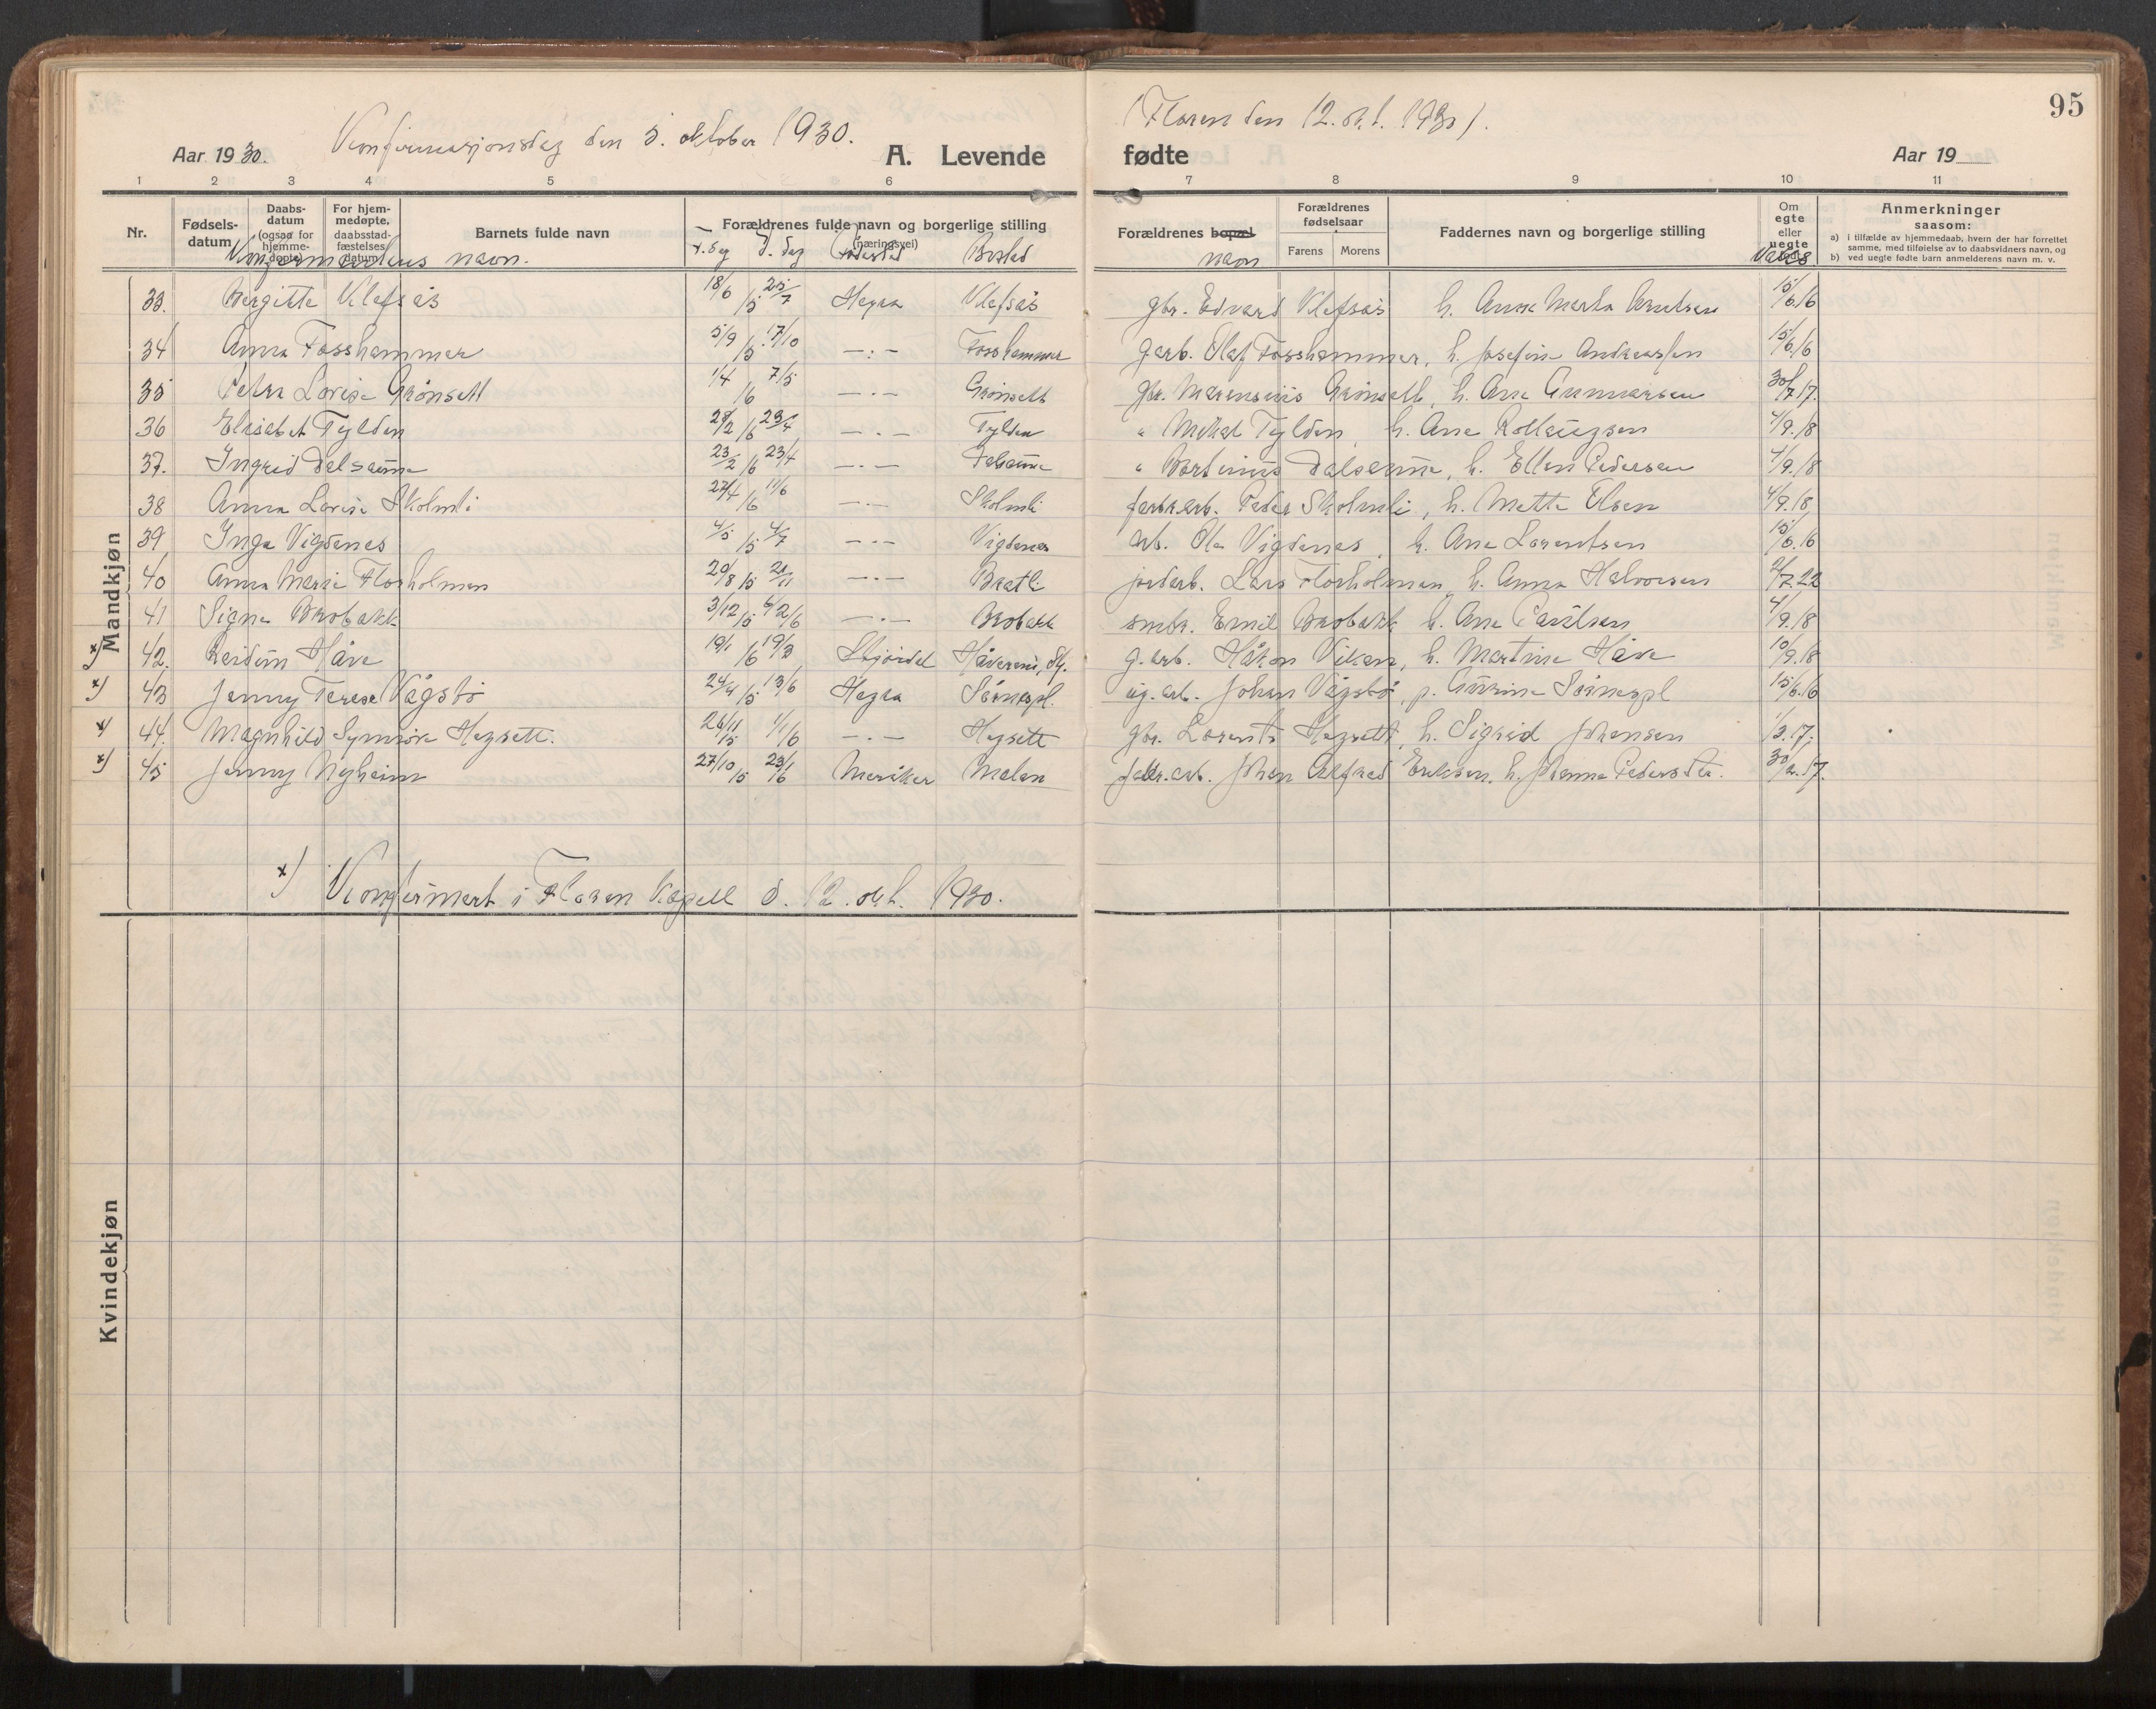 Konfirmasjonsdag den 5. oktober 1930.
(Floren den 12. okt. 1930).
95
Aar 1930.
A. Levende
fødte
Aar 19
1 2 3 4 5 6 7 8 9 10 11
Nr.
Fødsels-
datum
Daabs-
datum
(ogsaa for
hjemme-
døpte)
For hjem-
medøpte,
daabsstad-
fæstelses
datum
Barnets fulde navn
Forældrenes fulde navn og borgerlige stilling
(næringsvei)
Forældrenes bopæl
Forældrenes
fødselsaar
Farens Morens
Faddernes navn og borgerlige stilling
Om
egte
eller
uegte
Anmerkninger
saasom:
a) i tilfælde av hjemmedaab, hvem der har forrettet
samme, med tilføielse av to daabsvidners navn, og
b) ved uegte fødte barn anmelderens navn m. v.
Konfirmantens navn. F. dag D. dag Fødested Bosted navn Vaks.
33. Bergitte Klefsås 18/6 15 25/7 Hegra Klefsås gbr. Edvard Klefsås h. Anne Marta Arntsen 15/6.16
34 Anna Fosshammer 5/9 15 17/10 —.— Fosshammer g.arb. Olaf Fosshammer, h. Josefine Andreassen 15/6.16
35 Petra Lovise Grønsett 1/4 16 7/5 —.— Grønsett gbr. Marensius Grønsett, h. Ane Gunnarsen 30/7.17.
36 Elisabet Tylden 28/2 16 23/4 —.— Tylden " Mikal Tylden, h. Ane Rollaugsen 4/9.18
37. Ingrid Dalsaune 23/2 16 23/4 —.— Dalsaune " Bortinus Dalsaune, h. Ellen Pedersen 4/9.18
38 Anna Lovise Skolmli 27/4 16 11/6 —.— Skolmli fabr.arb. Peder Skolmli, h. Mette Olsen 4/9.18
39 Inga Vigdenes 4/5 15 4/7 —.— Vigdenes arb. Ola Vigdenes, h. Ane Lorentsen 15/6.16
40 Anna Marie Florholmen 20/8 15 21/11 —.— Bratli jordarb. Lars Florholmen, h. Anna Halvorsen 21/7.22
41 Signe Brobakk 3/12 15 12/6 —.— Brobakk smbr. Emil Brobakk h. Ane Paulsen 4/9.18
x) 42. Reidun Håve 19/1 16 19/3 Stjørdal Håvereni, Stj. g.arb. Håkon Viken, h. Martine Håve 10/9.18
x) 43 Jenny Terese Vågsbø 24/4 15 13/6 Hegra Sørnespl. ug.arb. Johan Vågsbø, p. Gurine Sørnespl 15/6.16
x) 44. Magnhild Synnøve Hegsett. 26/11 15 1/1 16 —.— Hegsett gbr. Lorents Hegsett, h. Sigrid Johansen 1/3.17.
x) 45 Jenny Nyheim 27/10 15 23/1 16 Meråker Malen fabr.arb. Johan Alfred Eriksen. h. Johanna Pedersdtr. 30/2.17.
x) Konfirmert i Floren Kapell d. 12. okt. 1930.
Mandkjøn
Kvindekjøn